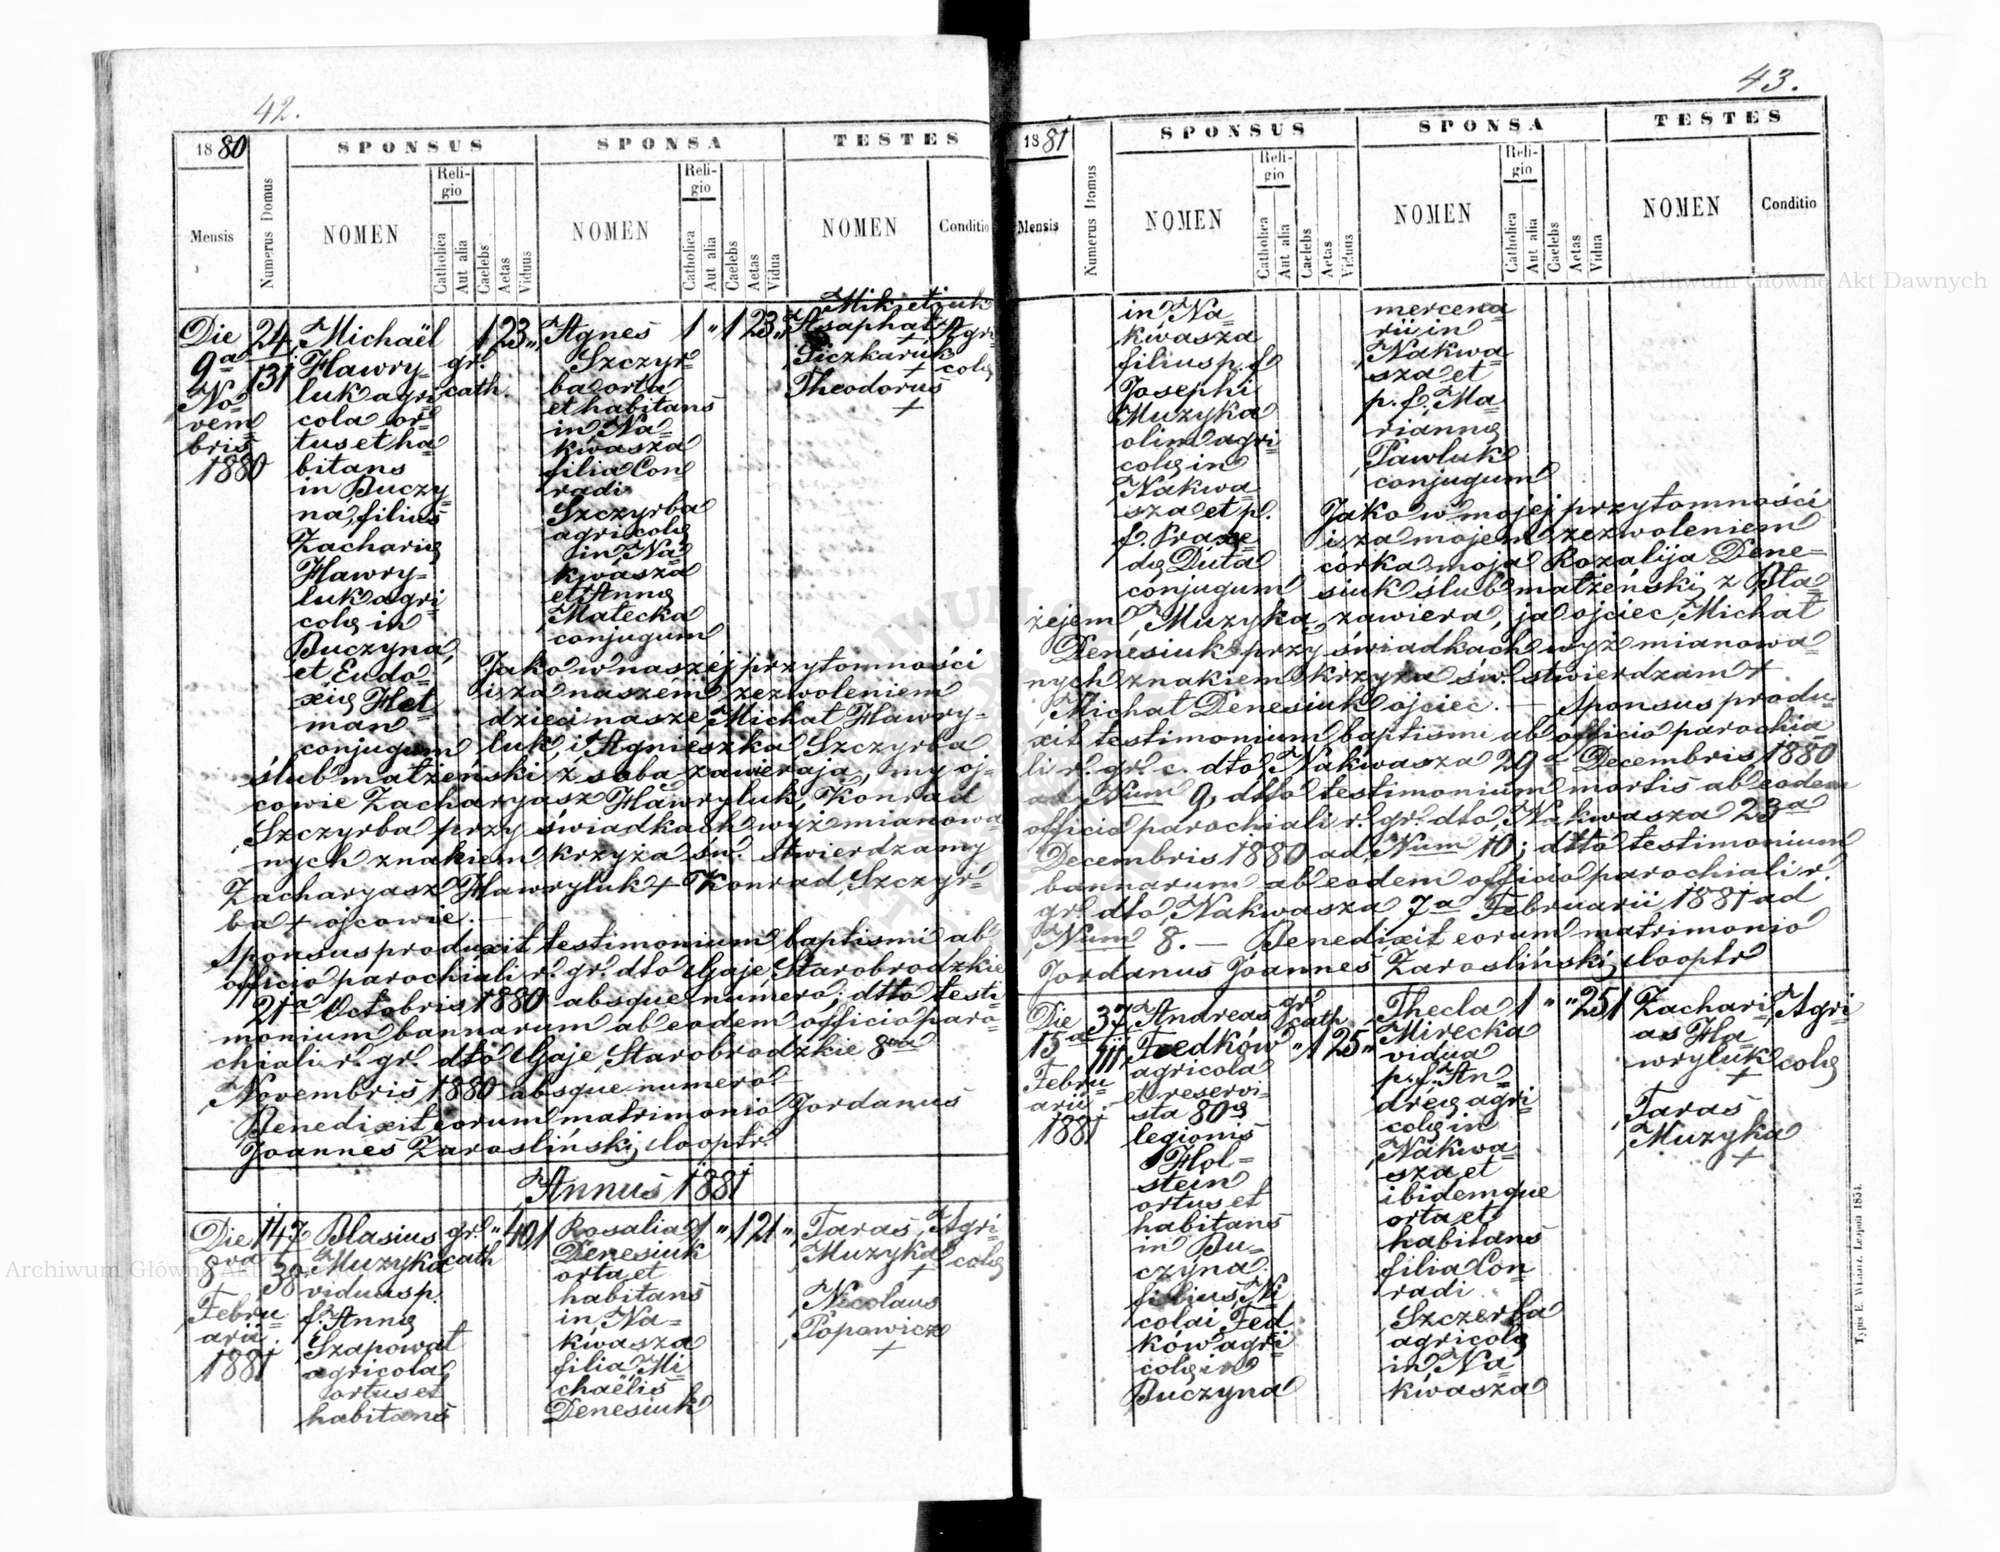 42.
1880
SPONSUS
SPONSA
TESTES
Mensis
Numerus Domus
NOMEN
Religio
Catholica
Aut alia
Caelebs
Aetas
Viduus
NOMEN
Religio
Catholica
Aut alia
Caelebs
Aetas
Vidua
NOMEN
Conditio
Die
9a
No=
vem
bris
1880
24
131
Michaël
Hawry=
luk agri
cola or=
tus et ha
bitans
in Buczy
na, filius
Zachariæ
Hawry=
luk agri
colæ in
Buczyna,
et Eudo=
xiæ Het
man
conjugum
gr.
cath.
1 23 "
Agnes
Szczyr=
ba orta
et habitans
in Na=
kwasza
filia Con
radi
Szczyrba
agricolæ
in Na=
kwasza
et Annæ
Matecka
conjugum
1 " 1 23 "
Mikietiuk
Asaphat
+
Siczkaruk
+
Theodorus
+
Agri
colæ
Jako w naszéj przytomności
i za naszém zezwoleniem
dzieci nasze Michał Hawry=
luk, i Agnieszka Szczyrba
ślub małżeński z sobą zawierają, my oj=
cowie Zacharyasz Hawryluk, Konrad
Szczyrba przy świadkach wyż mianowa=
nych znakiem krzyża św. stwierdzamy
Zacharyasz Hawryluk + Konrad Szczyr=
ba + ojcowie. —
Sponsus produxit testimonium baptismi ab
officio parochiali r. gr. dto Gaje Starobrodzkie
21a Octobris 1880 absque numero; dtto testi
monium bannarum ab eodem officio paro=
chiali r. gr. dto Gaje Starobrodzkie 8va
Novembris 1880 absque numero.
Benedixit eorum matrimonio Jordanus
Joannes Zarosliński, Cooptr.
Annus 1881
Die
8va
Febru=
arii.
1881
147
38
Blasius
Muzyka
viduus p.
f. Annæ
Szapował
agricola,
ortus et
habitans
gr. " 40 1
cath
Rosalia
Denesiuk
orta et
habitans
in Na=
kwasza
filia Mi
chaëlis
Denesiuk
1 " 1 21 "
Taras
Muzyka
+
Nicolaus
Popowicz
+
Agri
colæ
43.
1881
SPONSUS
SPONSA
TESTES
Mensis
Numerus Domus
NOMEN
Religio
Catholica
Aut alia
Caelebs
Aetas
Viduus
NOMEN
Religio
Catholica
Aut alia
Caelebs
Aetas
Vidua
NOMEN
Conditio
in Na=
kwasza
filius p. f.
Josephi
Muzyka
olim agri
colæ in
Nakwa=
sza et p.
f. Praxe
dæ Duta
conjugum
mercena
rii in
Nakwa=
sza et
p. f. Ma=
riannæ
Pawluk
conjugum
Jako w mojej przytomności
i za mojem zezwoleniem
córka moja Rozalija Dene=
siuk ślub małżeński z Bła=
żejem Muzyka, zawiera, ja ojciec Michał
Denesiuk przy świadkach wyż mianowa=
nych znakiem krzyża św. stwierdzam +
Michał Denesiuk ojciec. — Sponsus produ=
xit testimonium baptismi ab officio parochia
li r. gr. c. dto Nakwasza 29a Decembris 1880
ad Num 9, dtto testimonium mortis ab eodem
officio parochiali r. gr. dto, Nakwasza 23a
Decembris 1880 ad Num 10; dtto testimonium
bannarum ab eodem officio parochiali r.
gr. dto Nakwasza 7a Februarii 1881 ad
Num 8. — Benedixit eorum matrimonio
Jordanus Joannes Zarosliński, Cooptr
Die
15a
Febru=
arii.
1881
37
111
Andreas
Fedków
agricola
et reservi=
sta 80æ
legionis
Hol=
stein
ortus et
habitans
in Bu=
czyna.
filius Ni
colai Fed
ków agri
colæ in
Buczyna
gr.
cath
" 1 25 "
Thecla
Mirecka
vidua
p. f. An=
dreæ agri=
colæ in
Nakwa=
sza et
ibidemque
orta et
habitans
filia Con=
radi
Szczerba
agricolæ
in Na=
kwasza
1 " " 25 1
Zachari
as Ha=
wryluk
+
Taras
Muzyka
+
Agri
colæ
Typis E. Winiarz, Leopoli 1854.
Archiwum Główne Akt Dawnych
Archiwum Główne Akt Dawnych